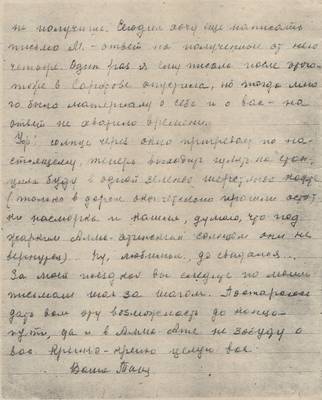 не получила. Сегодня хочу еще написать
письмо М. - ответ на полученное от него
четыре. Один раз я ему писала после
в Саратове опустила, но тогда мно
го было материалу о себе и о вас - на
ответ не хватило времени.
Ура! солнце через окно пригревает по на-
стоящему, теперь выхожу гулять на
буду в одной зеленой шерстяной кофте
(только в дороге окончательно прошли остат
ки насморка и кашля, думаю, что под
жарким Алма-атинским солнцем они не
вернутся)... Ну, любимые, до свидания...
За моей поездкой вы следите по моим
письмам шаг за шагом. Постараюсь
дать вам эту возможность до конца
пути, да и в Алма-Ате не забуду о
вас. Крепко-крепко целую вас.
Ваша Таня